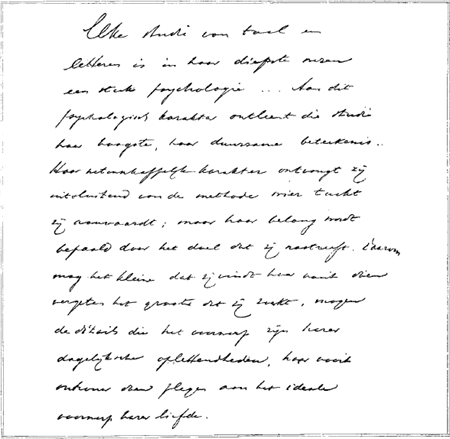 Elke studie van taal en
letteren is in haar diepste wezen
een stuk psychologie ... Aan dit
psychologisch karakter ontleent die studie
haar hoogste, haar duurzame beteekenis..
Haar wetenschappelijk karakter ontvangt zij
uitsluitend van de methode wier tucht
zij aanvaardt; maar haar belang wordt
bepaald door het doel dat zij nastreeft. Daarom
mag het kleine dat zij vindt haar nooit doen
vergeten het groote dat zij zoekt, mogen
de détails die het voorwerp zijn harer
dagelijksche oplettendheden, haar nooit
ontrouw doen plegen aan het ideale
voorwerp harer liefde.